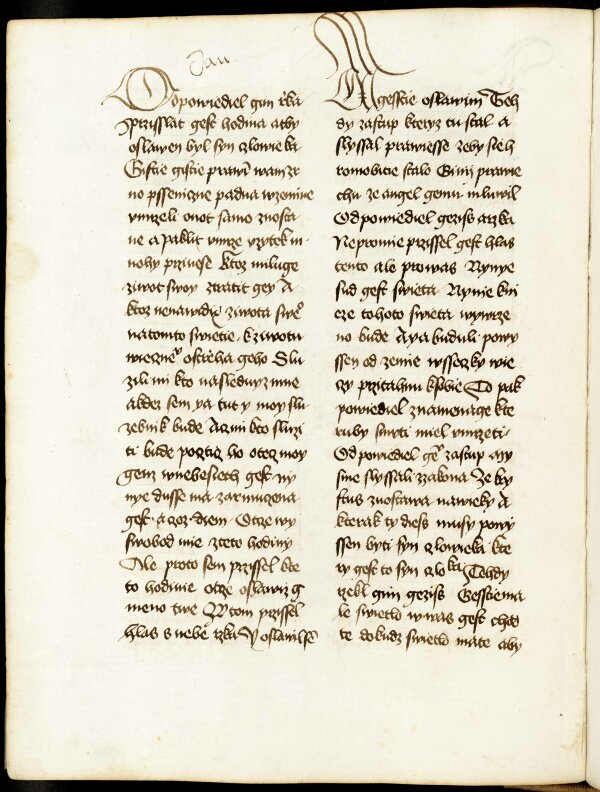 Jan
Odpowiediel gim rzka
Przisslat gest hodina aby
oslawen byl syn czlowieka
Gistie gistie prawi wam zr
no psseniczne padna wzemine
umrzeli onot samo zuosta
ne a paklit umrze uzytek m
nohy przinese Ktoz miluge
ziwot swoy ztratit gey A
ktoz nenawidi ziwota sweo
natomto swietie k ziwotu
wiecznemu ostrziha geho Slu
zili mi kto nasleduyz mne
a kdez sem ya tut y moy slu
zebnik bude A zmi kto sluzi
ti bude poctiz ho otecz moy
genz wnebesiech gest ny
nye dusse ma zarmucena
gest a coz diem Otcze wy
swobod mie zteto hodiny
Ale proto sem przissel kte
to hodinie otcze oslawiz g
meno twe Y tom przissel
hlas s nebe rzka Y oslawil sem
Y gesstie oslawim Teh
dy zastup kteryz tu stal a
slyssal prawiesse zeby se h
romobitie stalo Gini prawie
chu ze angel gemu mluwil
Odpowiediel gezis a rzka
Ne promie przissel gest hlas
tento ale prowas Nynye
sud gest swieta Nynie kni
eze tohoto swieta wywrze
no bude A ya buduli powy
ssen od zemie wsseczky wie
czy przitahnu k sobie To pak
powiediel znamenage kte
ruby smrti miel umrzeti
Odpowiediel gemu zastup my
sme slyssali zzakona Ze kry
stus zuostawa nawieky A
kterak ty dies musy powy
ssen byti syn czlowieka kte
ry gest to syn czloka Tehdy
rzekl gim gezis Gesstie ma
le swietlo w was gest chod
te dokudz swietlo mate aby